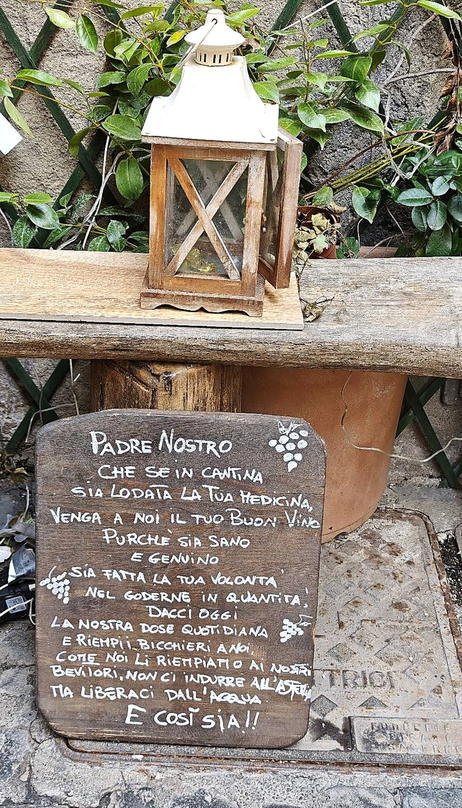 PADRE NOSTRO
CHE SE IN CANTINA
SIA LODATA LA TUA MEDICINA,
VENGA A NOI IL TUO BUON VINO
PURCHE SIA SANO
E GENUINO
SIA FATTA LA TUA VOLONTA'
NEL GODERNE IN QUANTITA'!
DACCI OGGI
LA NOSTRA DOSE QUOTIDIANA
E RIEMPII BICCHIERI A NOI,
COME NOI LI RIEMPIAMO AI NOSTRI
BEVITORI, NON CI INDURRE ALL'
MA LIBERACI DALL'ACQUA.
E COSÌ SIA!!
TRICI